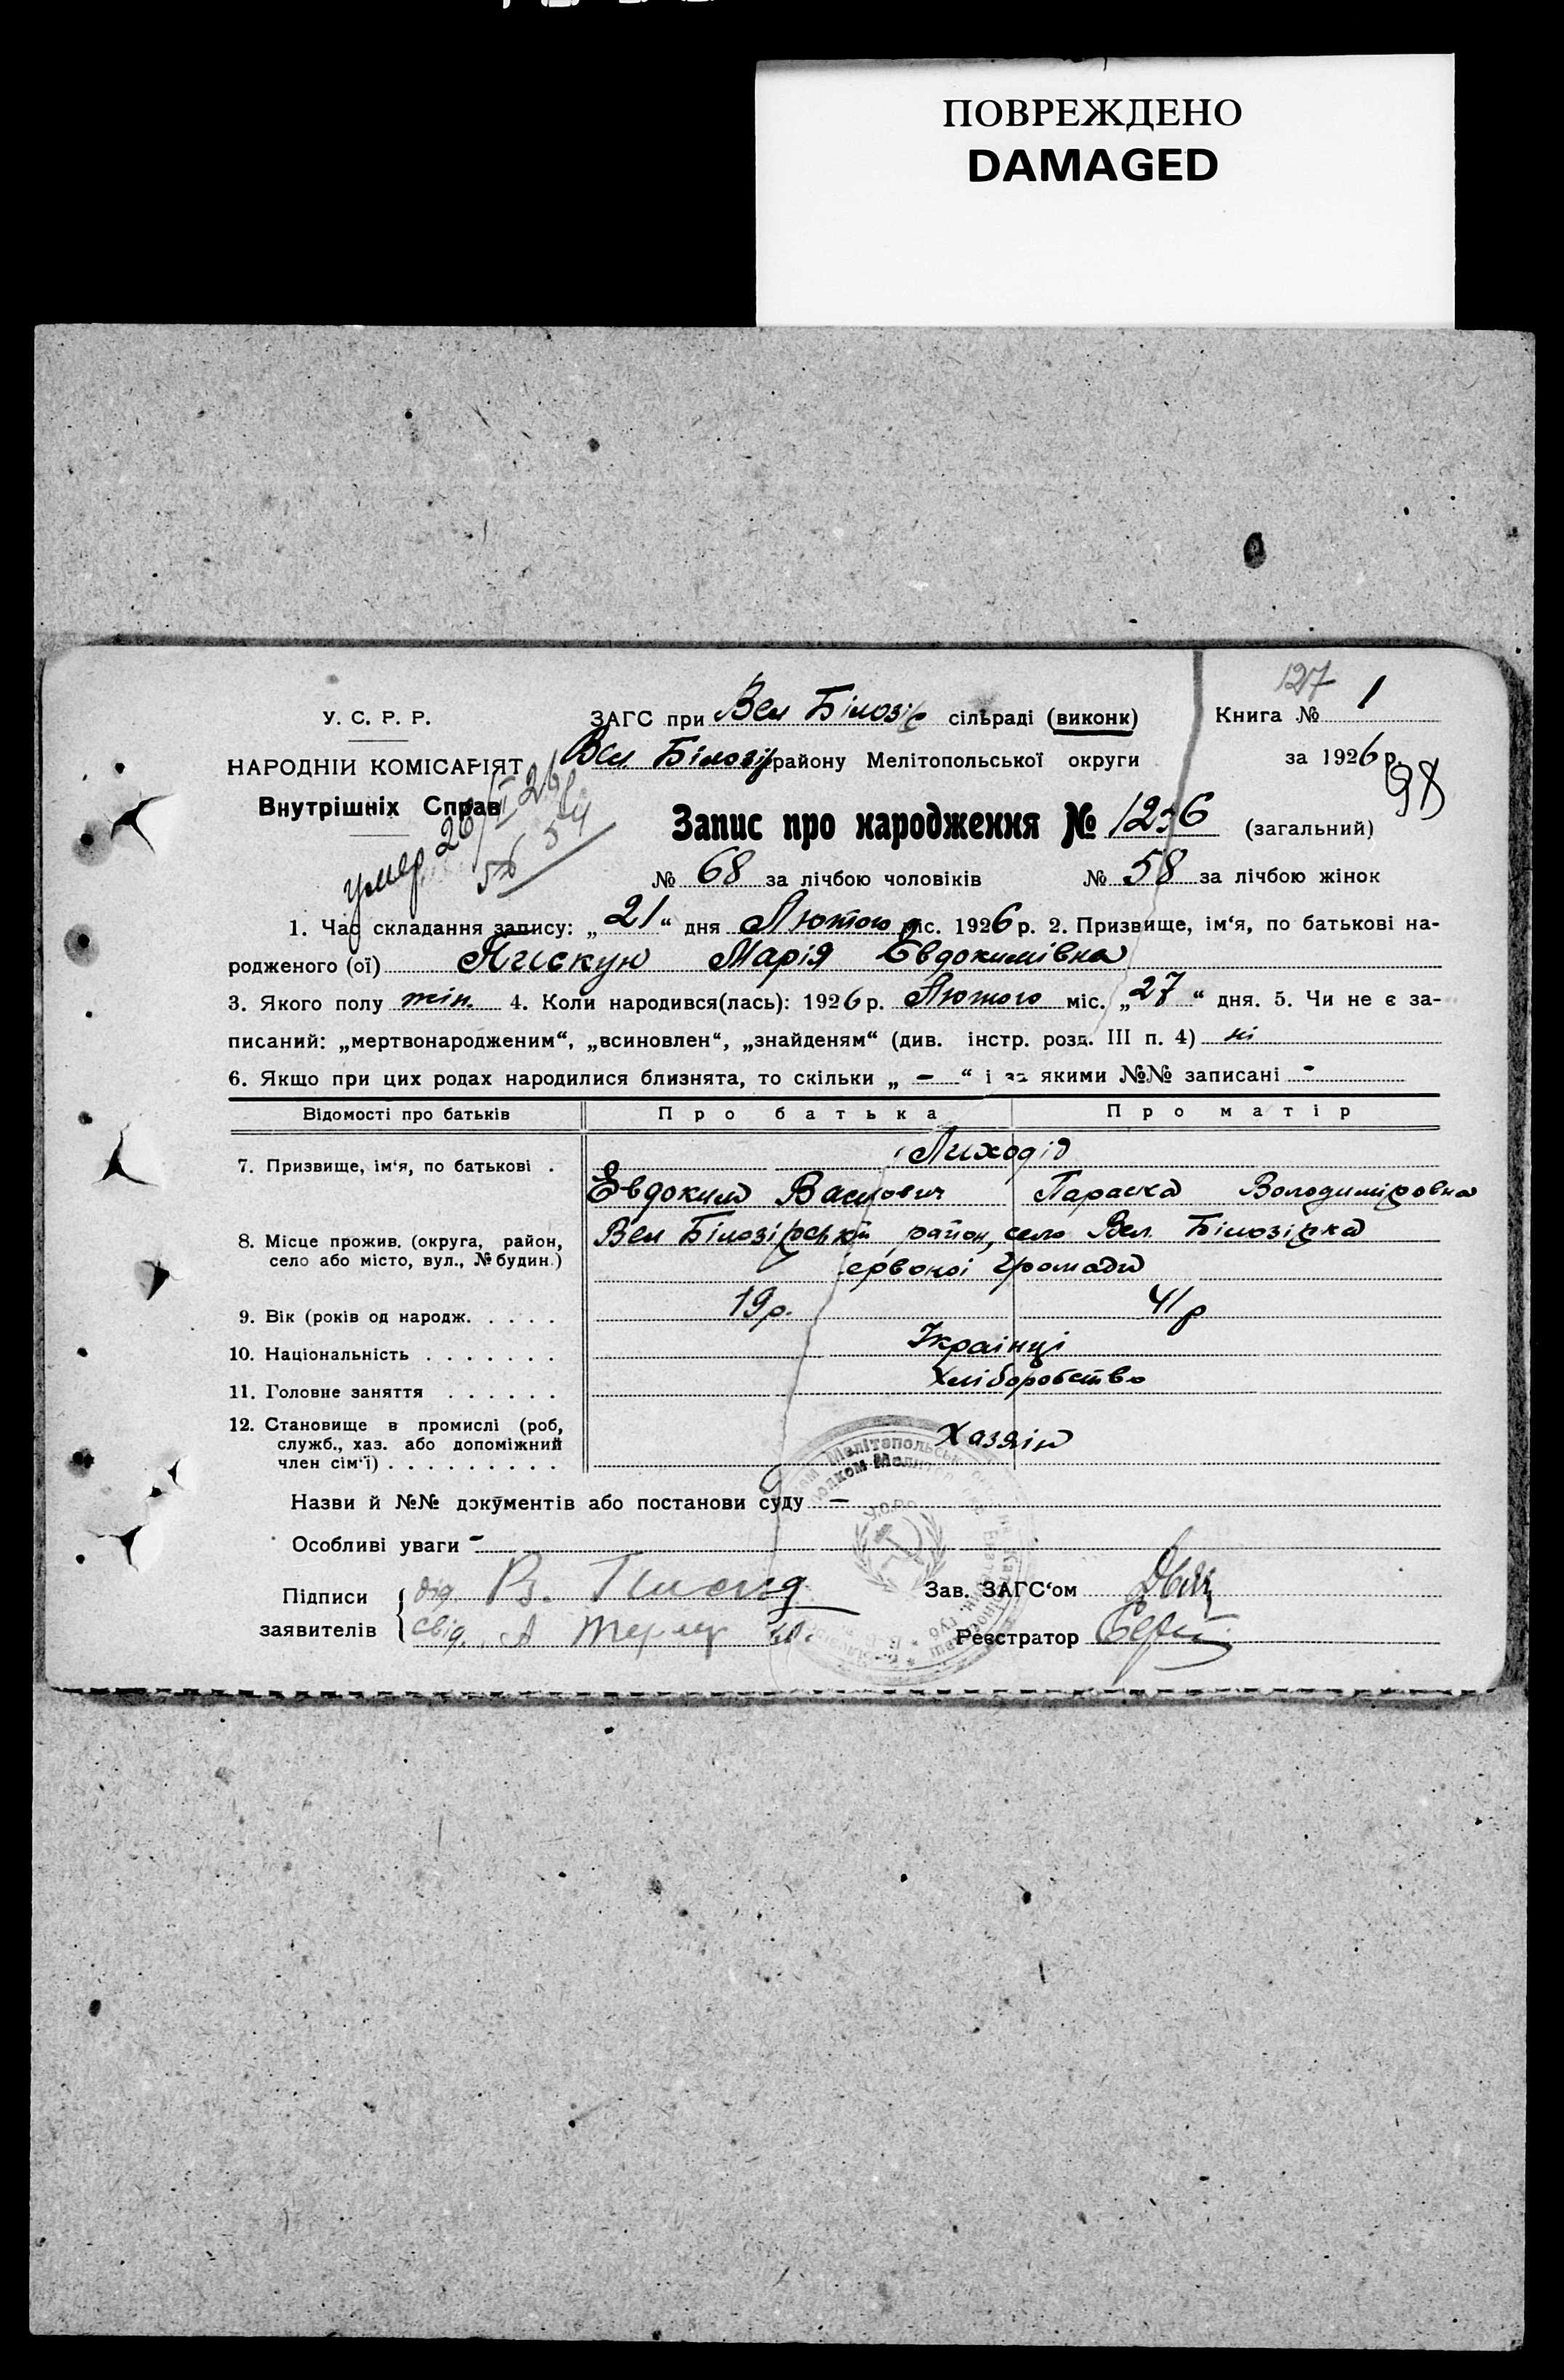 ПОВРЕЖДЕНО
DAMAGED
127
У. С. Р. Р.
ЗАГС при Вел Білозір сільраді (виконк)
Книга № 1
НАРОДНІЙ КОМІСАРІЯТ
Вел Білозір району Мелітопольської округи
за 1926 р.
98
Внутрішніх Справ
умер 26/II 26р.
№ 54
Запис про народження № 1236 (загальний)
№ 68 за лічбою чоловіків № 58 за лічбою жінок
1. Час складання запису: „21“ дня Лютого міс. 1926 р. 2. Призвище, ім‘я, по батькові на-
родженого (ої) Пискун Марія Евдокимівна
3. Якого полу жін. 4. Коли народився(лась): 1926 р. Лютого міс. „27“ дня. 5. Чи не є за-
писаний: „мертвонародженим“, „всиновлен“, „знайденям“ (див. інстр. розд. III п. 4) ні
6. Якщо при цих родах народилися близнята, то скільки „ – “ і за якими №№ записані -
Відомості про батьків Про батька Про матір
7. Призвище, ім‘я, по батькові . Лиходід
Евдоким Василович Параска Володимировна
8. Місце прожив. (округа, район, село або місто, вул., № будин.) Вел Білозірський район, село Вел. Білозірка
громади
9. Вік (років од народж. . . . . 19р. 41р
10. Національність . . . . . . . Українці
11. Головне заняття . . . . . . Хліборобство
12. Становище в промислі (роб,
служб., хаз. або допоміжний
член сім‘ї) . . . . . . . . . Хазяін
Назви й №№ документів або постанови суду —
Особливі уваги -
Підписи
заявителів
дід. В.
свід. А
Зав. ЗАГС‘ом
Реєстратор